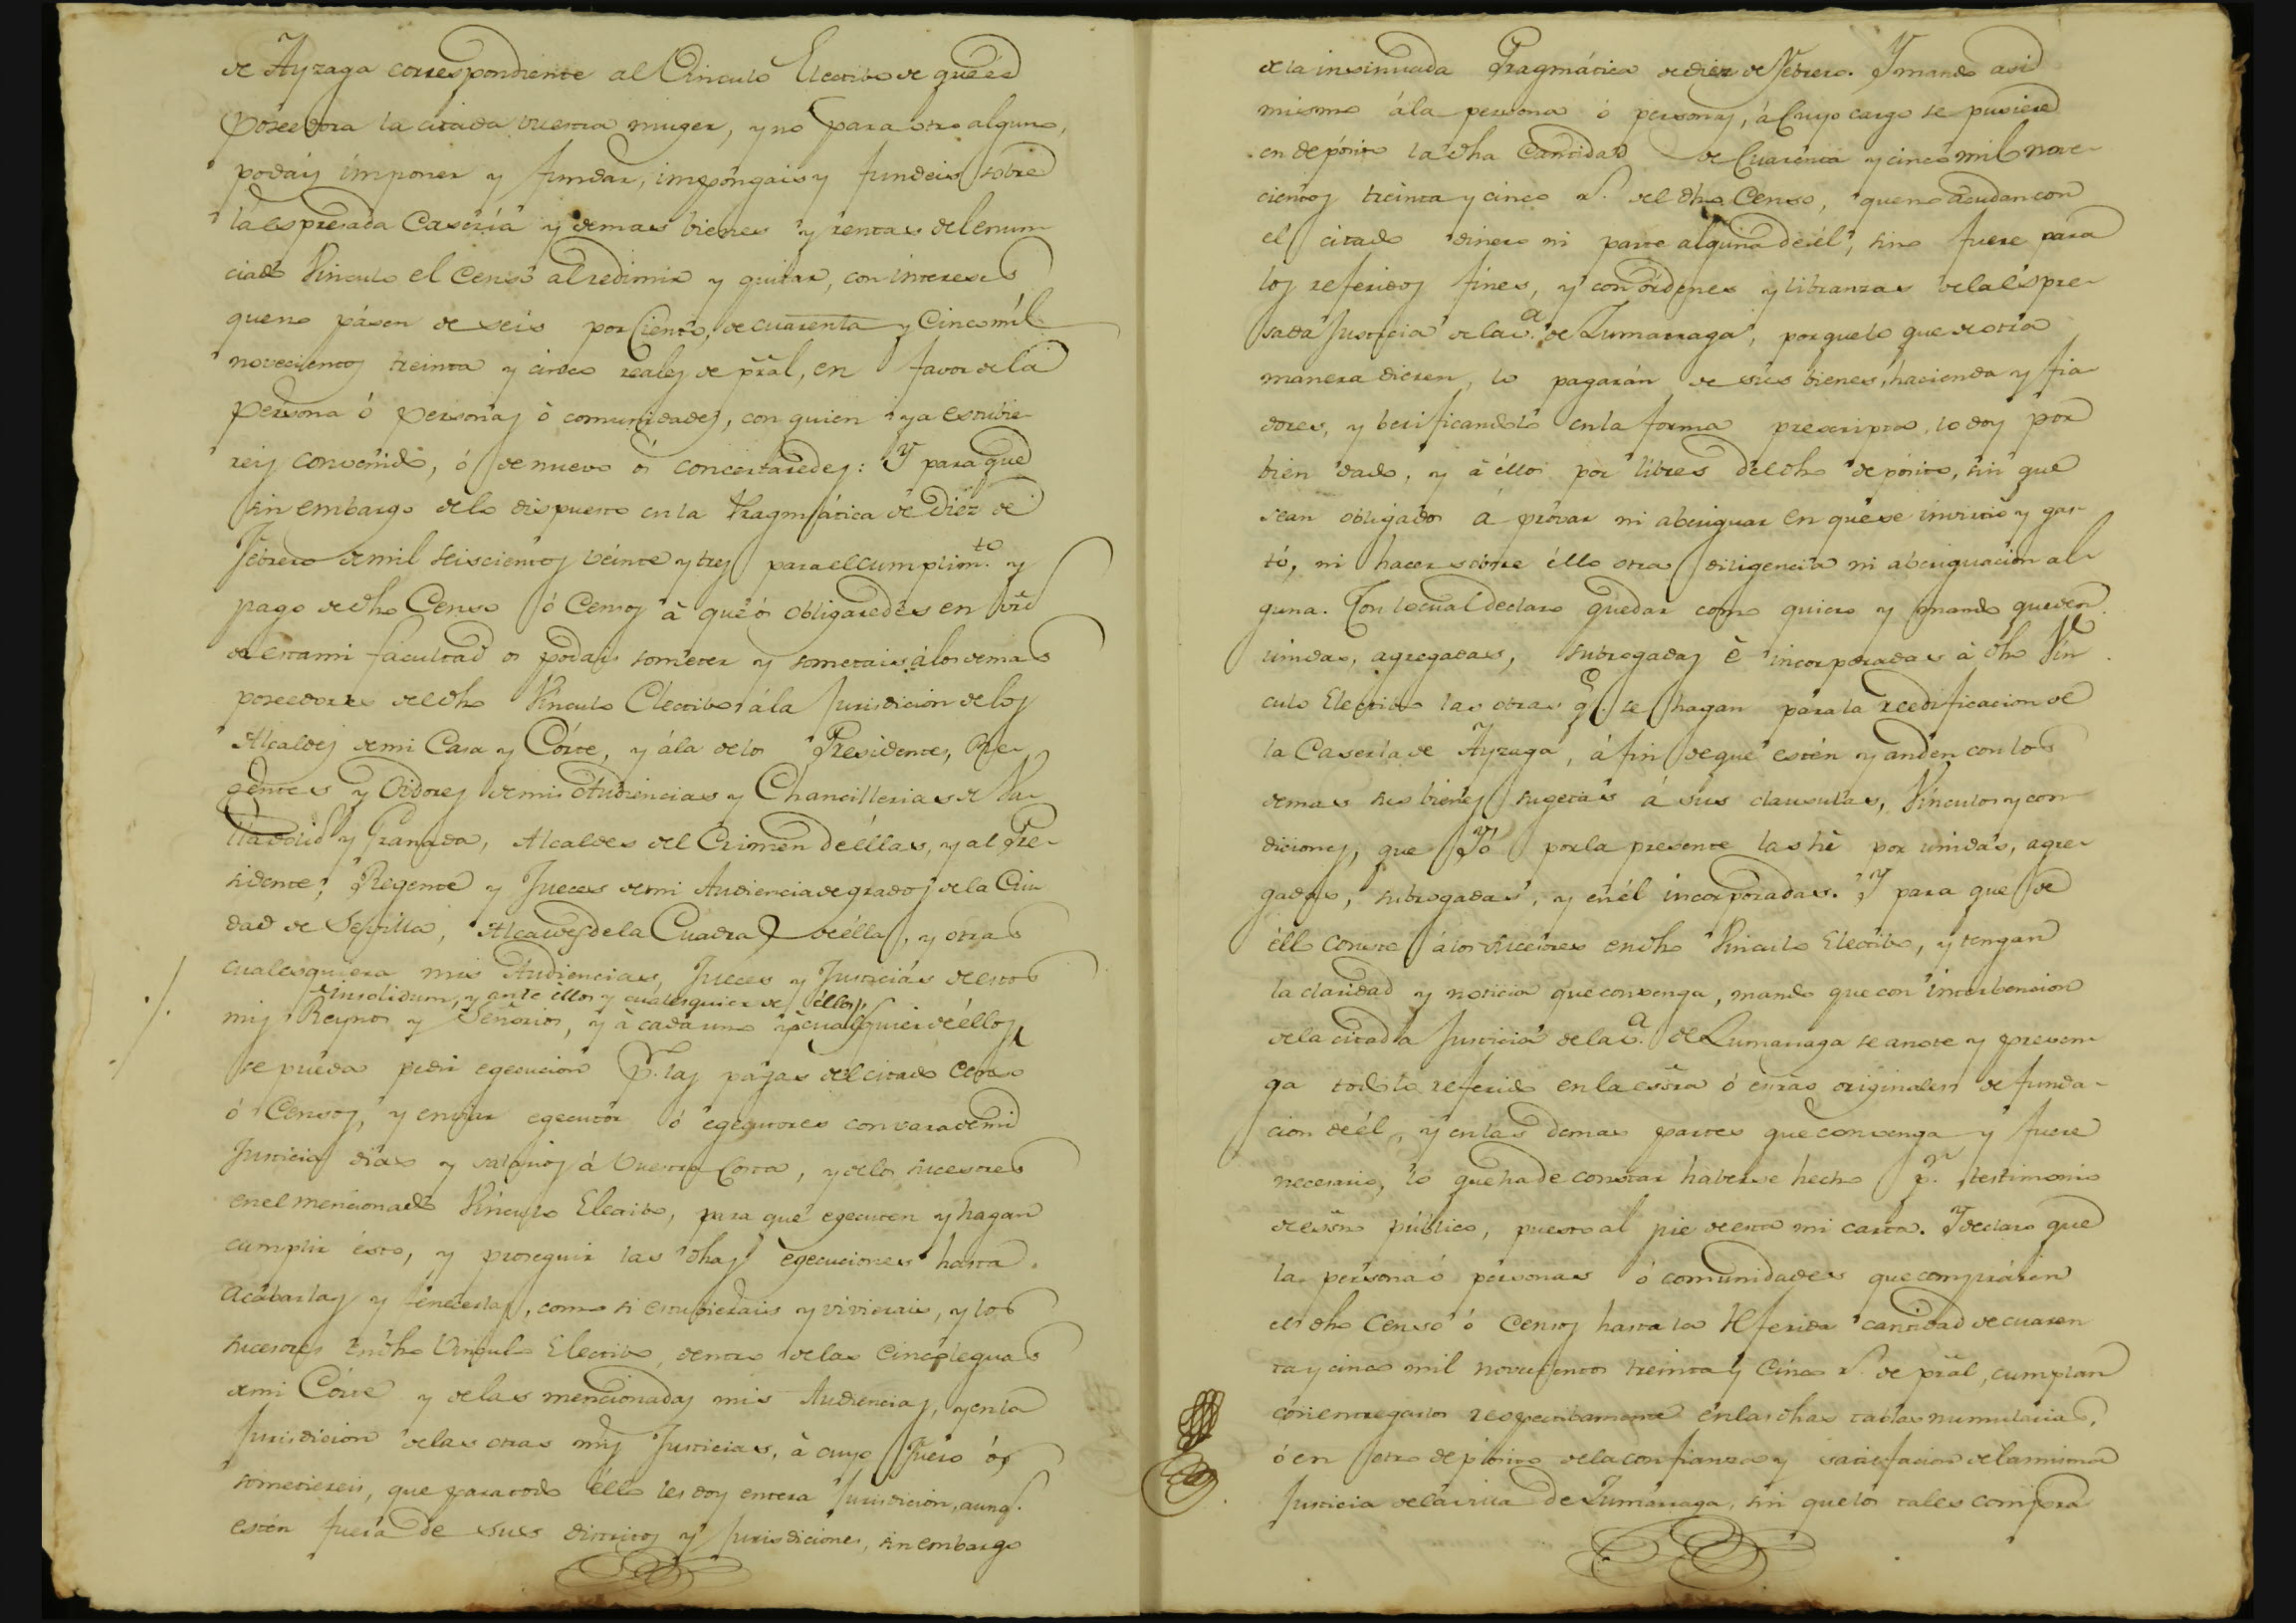 de Ayzaga correspondiente al Vinculo Electibo de que és
Poseedora la citada vuestra muger, y no para otro alguno,
podáis imponer y fundar, impóngais y fundeis sobre
la espresada Casería y demas bienes y rentas del enun-
ciado Vinculo el Censo al redimir y quitar, con intereses
que no pásen de seis por Ciento, de cuarenta y Cinco mil
novecientos treinta y cinco reales de prãl, en favor de la
persona ó personas ó comunidades, con quien ya estubie-
reis convenido, ó de nuevo os concertaredes: Y para que
sin embargo de lo dispuesto en la Pragmática de Diéz de
Febrero de mil seiscientos veinte y tres para el cumplim.to y
pago de dho Censo ó Censos à que os obligaredes en vrd
de esta mi facultad os podais someter y sometais á los demas
poseedores del dho Vinculo Electibo á la Jurisdicion de los
Alcaldes de mi Casa y Córte, y á la de los Presidentes, Re-
gentes y Oidores de mis Audiencias y Chancillerias de Va-
lladolid y Granada, Alcaldes del Crimen de éllas, y al Pre-
sidente, Regente y Jueces de mi Audiencia de grados de la Ciu
dad de Sevilla, Alcaldes de la Cuadra de élla, y otras
cualesquiera mis Audiencias, Jueces y Justiciás de estos
insolidum, y ante éllos y cualesquier de éllos,
mis Reynos y Señorios, y à cada uno y à cualquier de éllos
se pueda pedir egecucion p.r las pagas del citado Censo
ó Censos, y enviar egecutor ó egecutores con vara de mi
Justicia dias y salarios á vuestra Costa, y de los sucesores
en el mencionado Vinculo Electibo, para que egecuten y hagan
cumplir ésto, y proseguir las dhas egecuciones hasta
acabarlas y fenecerlas, como si estubierais y vivierais, y los
sucesores en dho Vinculo Electibo, dentro de las Cinco leguas
de mi Córte y de las mencionadas mis Audiencias, y en la
Jurisdicion de las otras mis Justicias, à cuyo Fuero ós
sometiereis, que para todo éllo les doy entera Jurisdicion, aunq.e
estén fuera de sus distritos y Jurisdiciones, sin embargo
de la insinuada Pragmática de diez de Febrero. Y mando asi
mismo á la persona ó personas, á Cuyo cargo se pusiere
en depósito la dha Cantidad de Cuarenta y cinco mil nove-
cientos treinta y cinco r.s del dho Censo, que no acudan con
el citado dinero ni parte alguna de él, sino fuere para
los referidos fines, y con órdenes y libranzas de la éspre-
sada Justicia de la v.a de Zumarraga, porque lo que de otra
manera dieren, lo pagarán de sus bienes, hacienda y fia-
dores, y berificandolo en la forma prescripta, lo doy por
bien dado, y à éllos por libres del dho depósito, sin que
sean obligados á próvar ni aberiguar en que se invirtió y gas-
tó, ni hacer sobre éllo otra diligencia ni aberiguacion al-
guna. Con lo cual declaro quedar como quiero y mando queden
unidas, agregadas, subrogadas é incorporadas à dho Vin
culo Electibo las obras q.e se hagan para la reedificacion de
la Caseria de Ayzaga, á fin de que estén y anden con los
demas sus bienes sugetas á sus clausulas, Vinculos y con
diciones, que Yó por la presente las hé por unidas, agre-
gadas, subrogadas, y en él incorporadas. Y para que de
éllo conste á los sucesores en dho Vinculo Electibo, y tengan
la claridad y noticia que convenga, mando que con interbencion
de la citada Justicia de la v.a de Zumarraga se anote y preven-
ga todo lo referido en la escrã ó escrãs originales de funda-
cion de él, y en las demas partes que convenga y fuere
necesario, lo que ha de constar haberse hecho p.r testimonio
de escño público, puesto al pie de esta mi carta. Y declaro que
la persona ó personas ó comunidades que compráren
el dho Censo ó Censos hasta la referida cantidad de cuaren
ta y cinco mil novecientos treinta y Cinco r.s de prãl, cumplan
con entregarlos respectibamente en las dhas tablas numularias,
ó en otro depósito de la confianza y satisfacion de la misma
Justicia de la villa de Zumarraga, sin que los tales compra